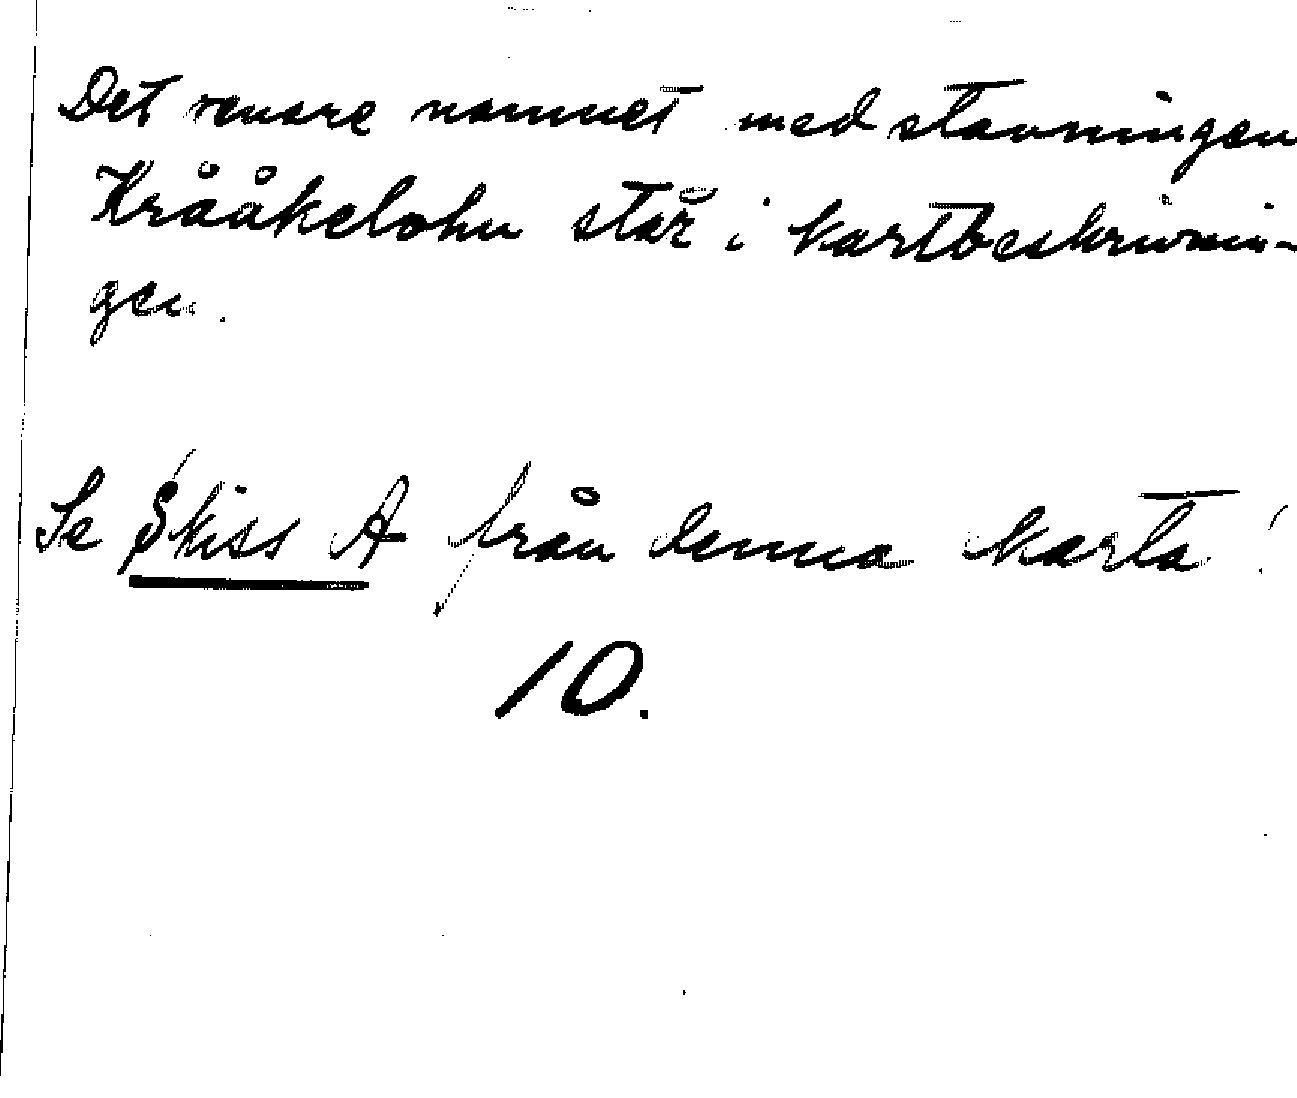 Det senare namnet med stavningen
Krååkelohn står i kartbeskrivnin-
gen.
Se Skiss A från denna karta!
10.